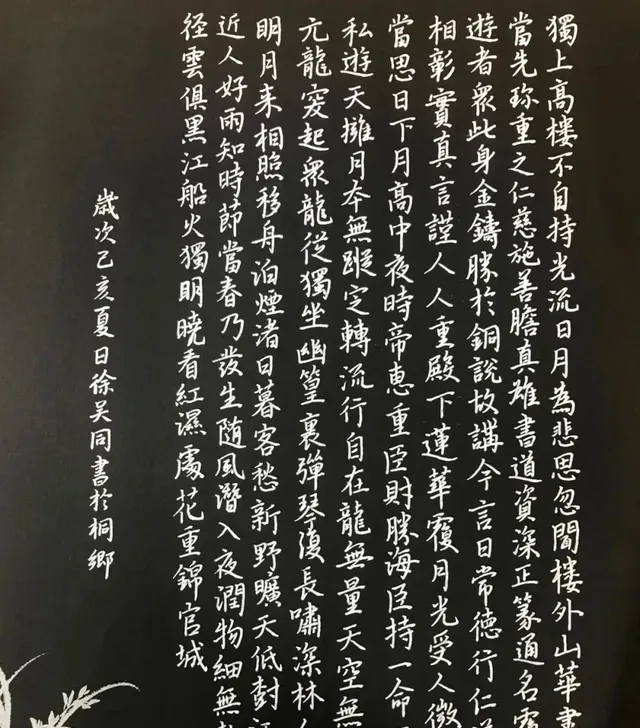 獨上高樓不自持光流日月為悲思忽聞樓外山華書
當先珎重之仁慈施善膽真雖書道資深正篆通名露
遊者眾此身金鑄勝於銅說故講今言日常德行仁
相彰實真言謹人人重殿下蓮華覆月光受人微
當思日下月高中夜時帝惠重臣財勝海臣持一命
私遊天擁月夲無蹤定轉流行自在龍無量天空無
亢龍突起眾龍從獨坐幽篁裏彈琴復長嘯深林
明月来相照移舟泊煙渚日暮客愁新野曠天低
近人好雨知時節當春乃發生随風潛入夜潤物細無
径雲俱黑江船火獨明曉看紅濕處花重錦官城
歲次己亥夏日徐吴同書於桐鄉